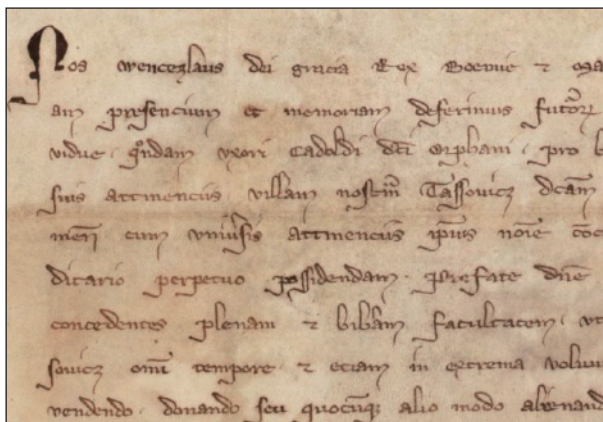 Nos Wenceʒlaus dei gracia Rex Boemie ⁊ Ma
am presencium et memoriam deferimus futor̄
vidue qndam vxori Cadoldi dc̄i Orphani · pro
suis attinenciis villam nostrā Tassovicz dc̄am
cum vniūsis attinenciis ip̄ius noīe
ditario perpetuo possidendam · Prefate dn̄e
concedentes plenam ⁊ lib̄am facultatem · vt
sovicz omi tempore ⁊ eciam in extrema
vendendo · donando seu quocūq; alio modo alienand